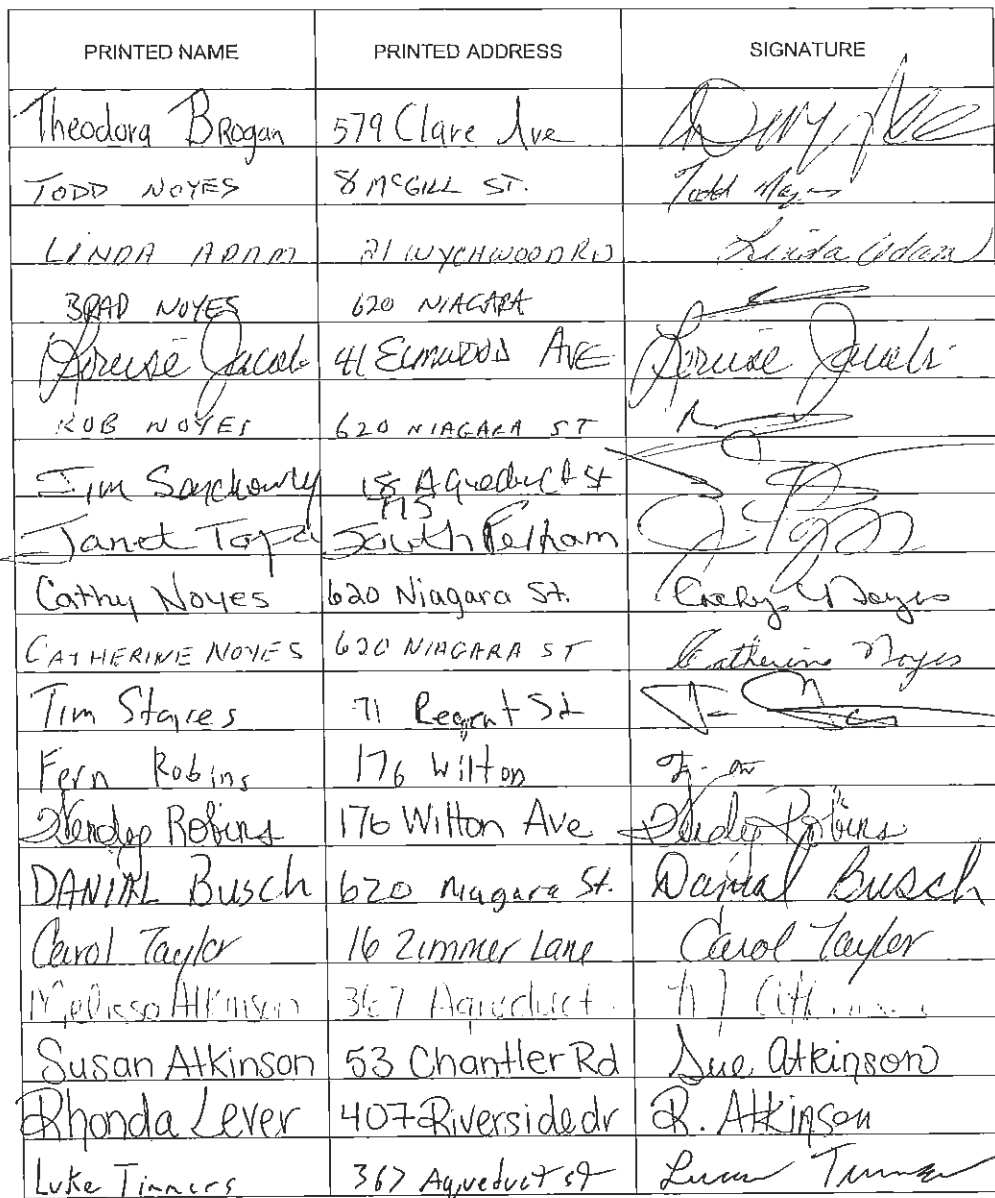 PRINTED NAME PRINTED ADDRESS SIGNATURE
Theodora Brogan 579 Clare Ave
TODD NOYES 8 McGILL ST. Todd
LINDA ADAM 21 WYCHWOOD RD Linda Adam
BRAD NOYES 620 NIAGARA
Jacob 41 ELMWOOD AVE
ROB NOYES 620 NIAGARA ST
Jim 18 Aqueduct St
775
Janet South Pelham
Cathy Noyes 620 Niagara St. Cathy Noyes
CATHERINE NOYES 620 NIAGARA ST Catherine Noyes
Tim Stayres 71 Regent St
Fern Robins 176 Wilton
Robins 176 Wilton Ave Robins
DANIAL Busch 620 Niagara St. Danial Busch
Carol Taylor 16 Zimmer Lane Carol Taylor
Melissa Atkinson 367 Aqueduct
Susan Atkinson 53 Chantler Rd Sue Atkinson
Rhonda Lever 407 Riverside dr R. Atkinson
Luke Timmers 367 Aqueduct st